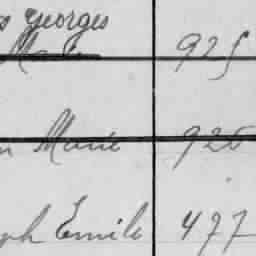 s Georges
925
n Marie 926
ph Emile 477